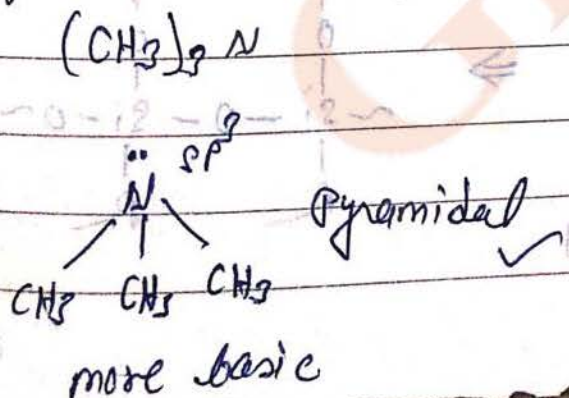 (CH3)3 N
sp3
N
Pyramidal
CH3 CH3 CH3
more basic